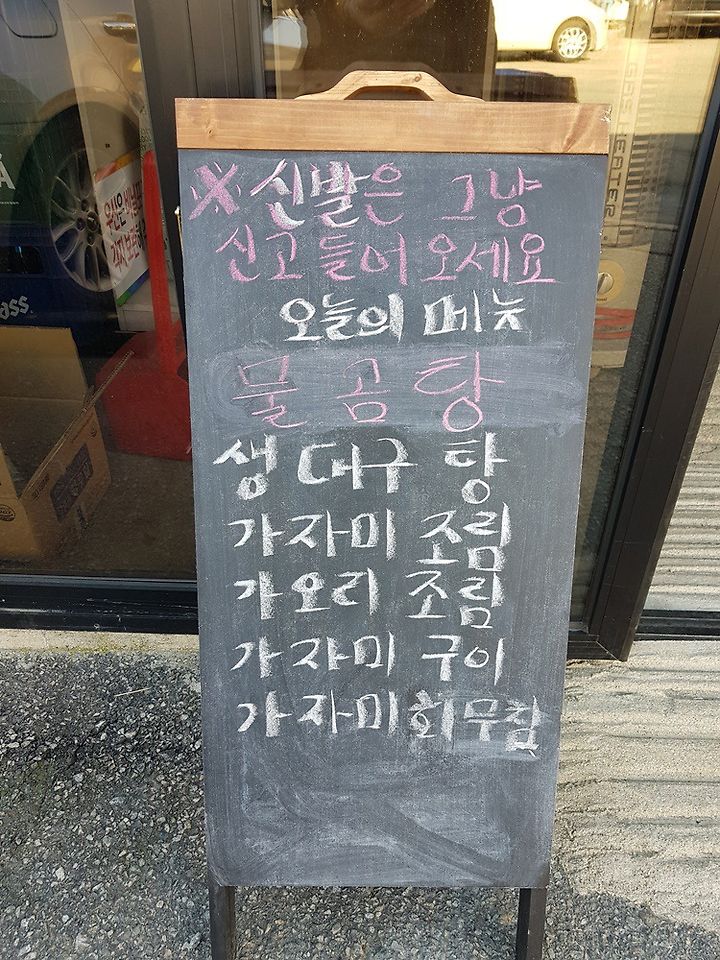 ※ 신발은 그냥
신고 들어 오세요
오늘의 메뉴
물 곰 탕
생 대구 탕
가자미 조림
가오리 조림
가자미 구이
가자미 회무침
우산은 비닐포
GAS HEATER